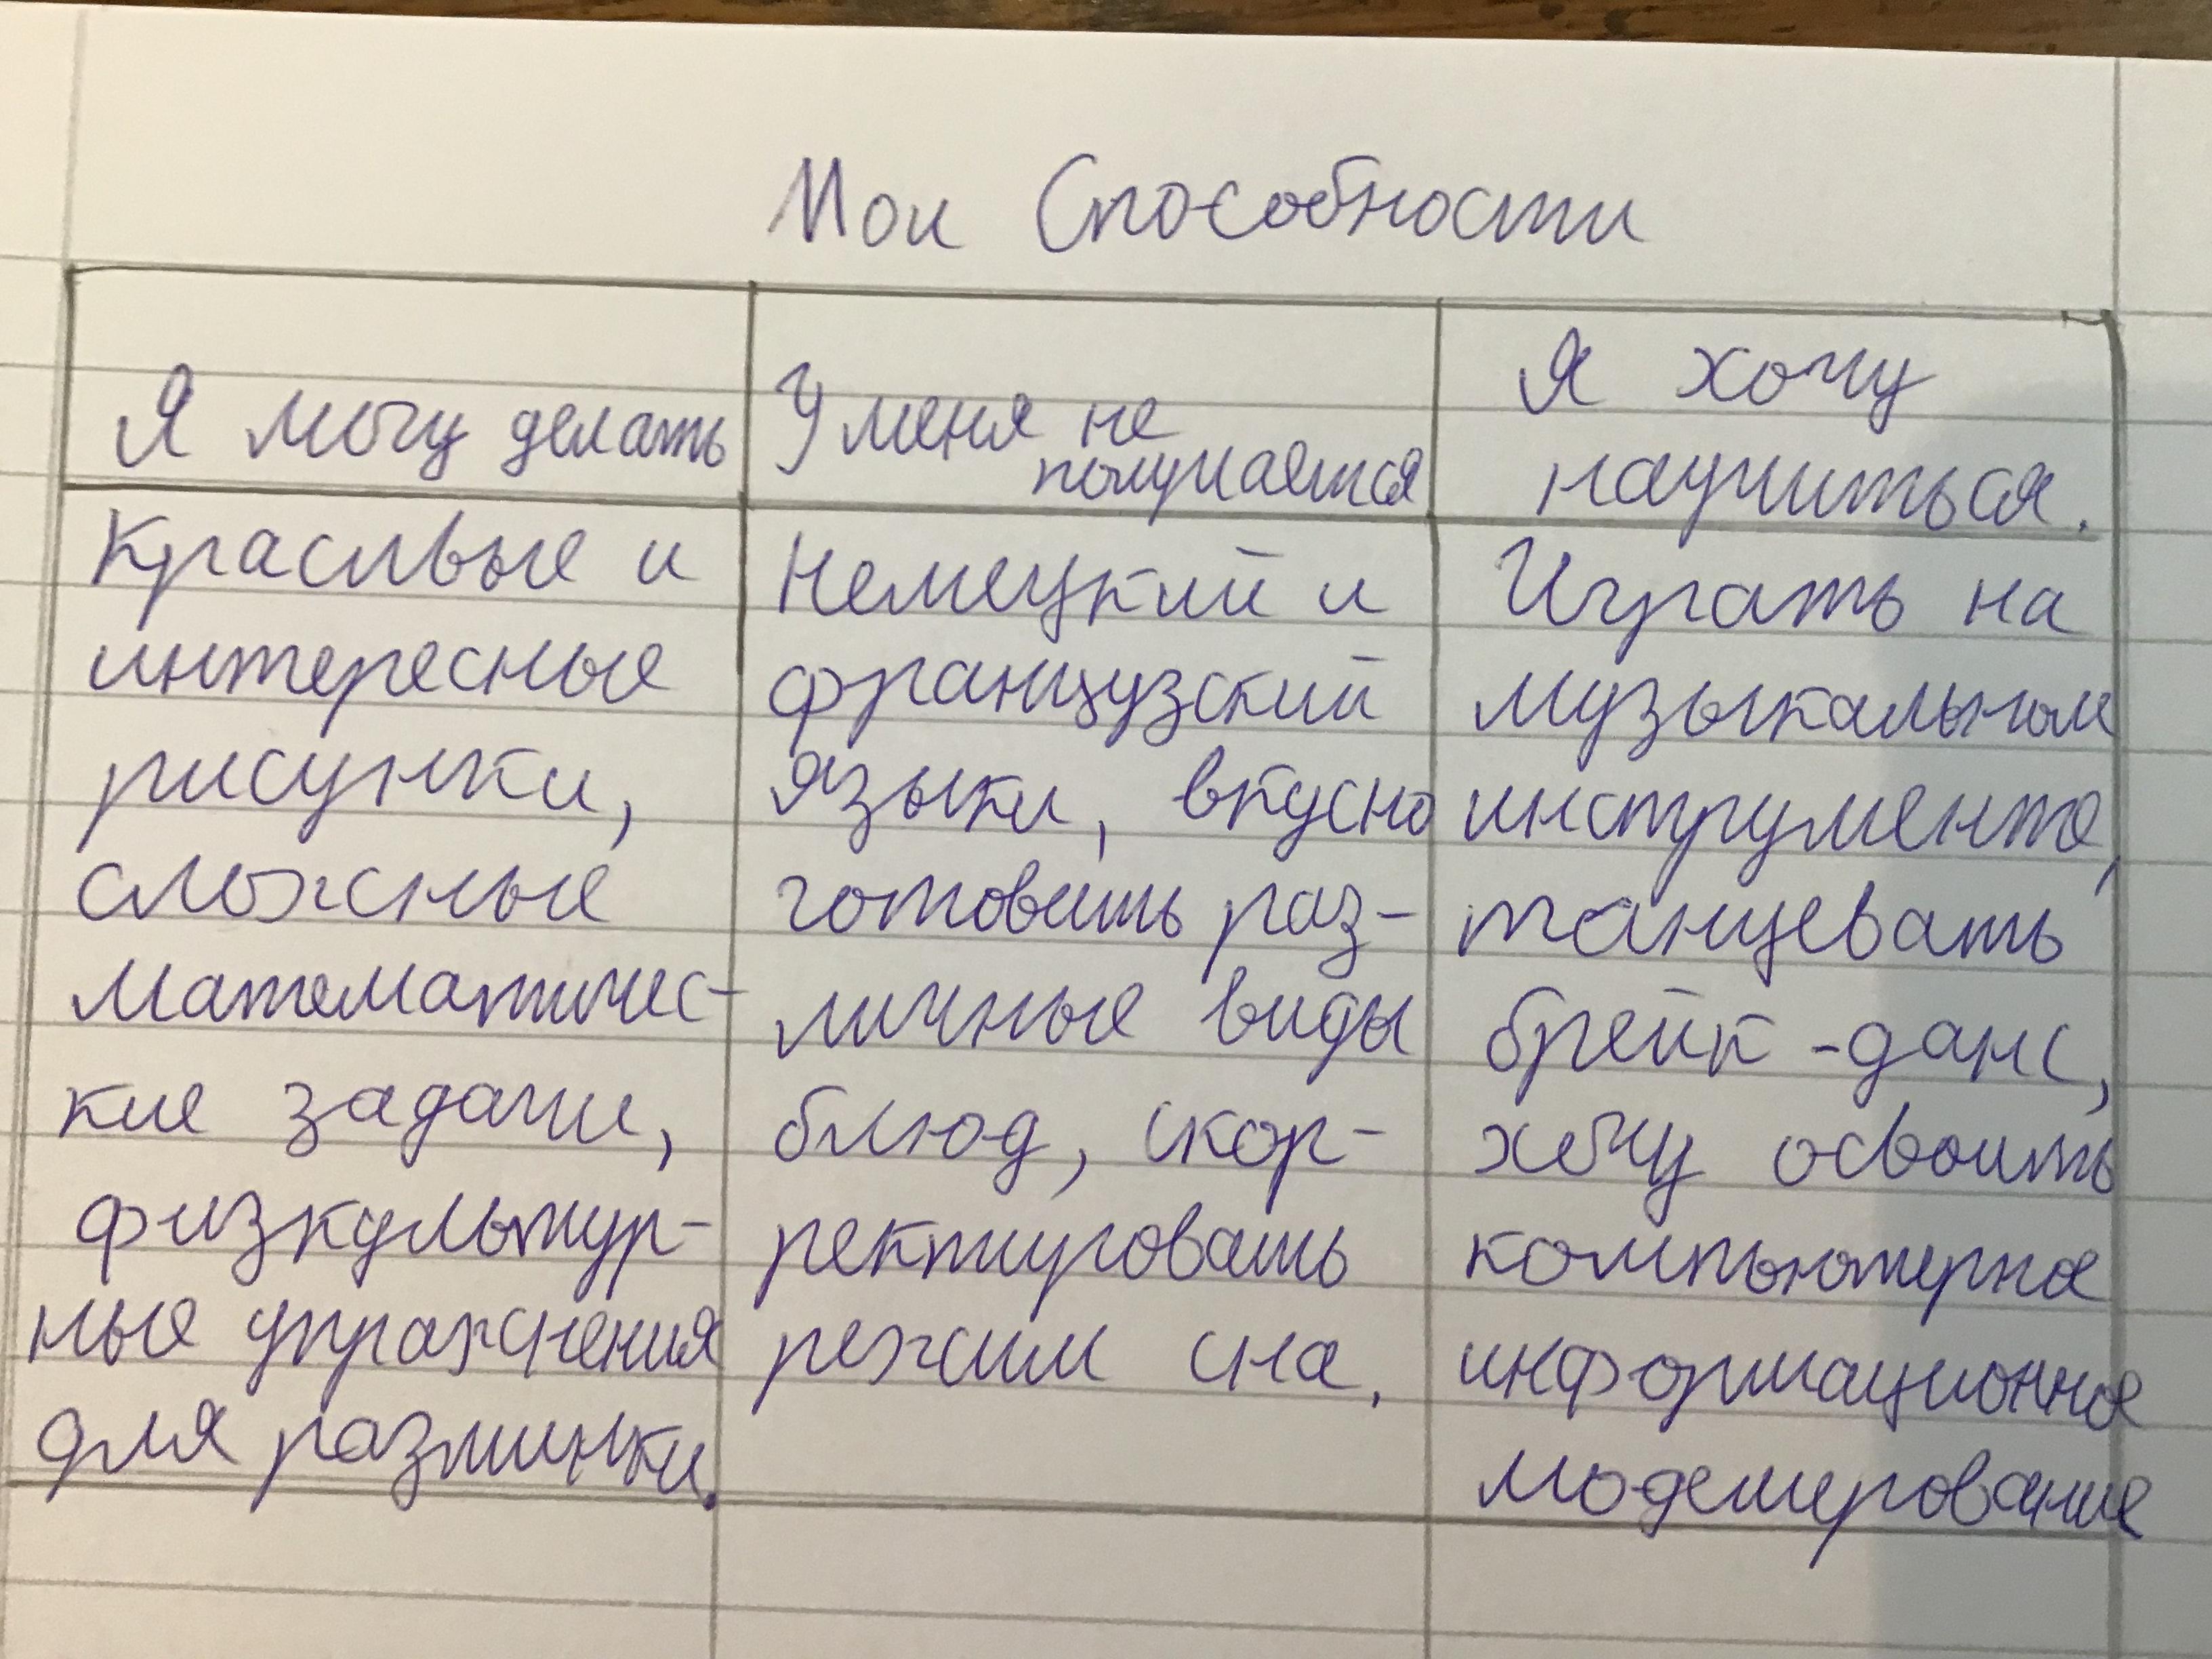 Мои Способности
Я могу делать
У меня не
получается
Я хочу
научиться.
Красивые и
интересные
рисунки,
сложные
математичес-
кие задачи,
физкультур-
ные упражнения
для разминки.
Немецкий и
французский
языки, вкусно
готовить раз-
личные виды
блюд, скор-
ректировать
режим сна.
Играть на
музыкальном
инструменте,
танцевать
брейк-данс,
хочу освоить
компьютерное
информационное
моделирование